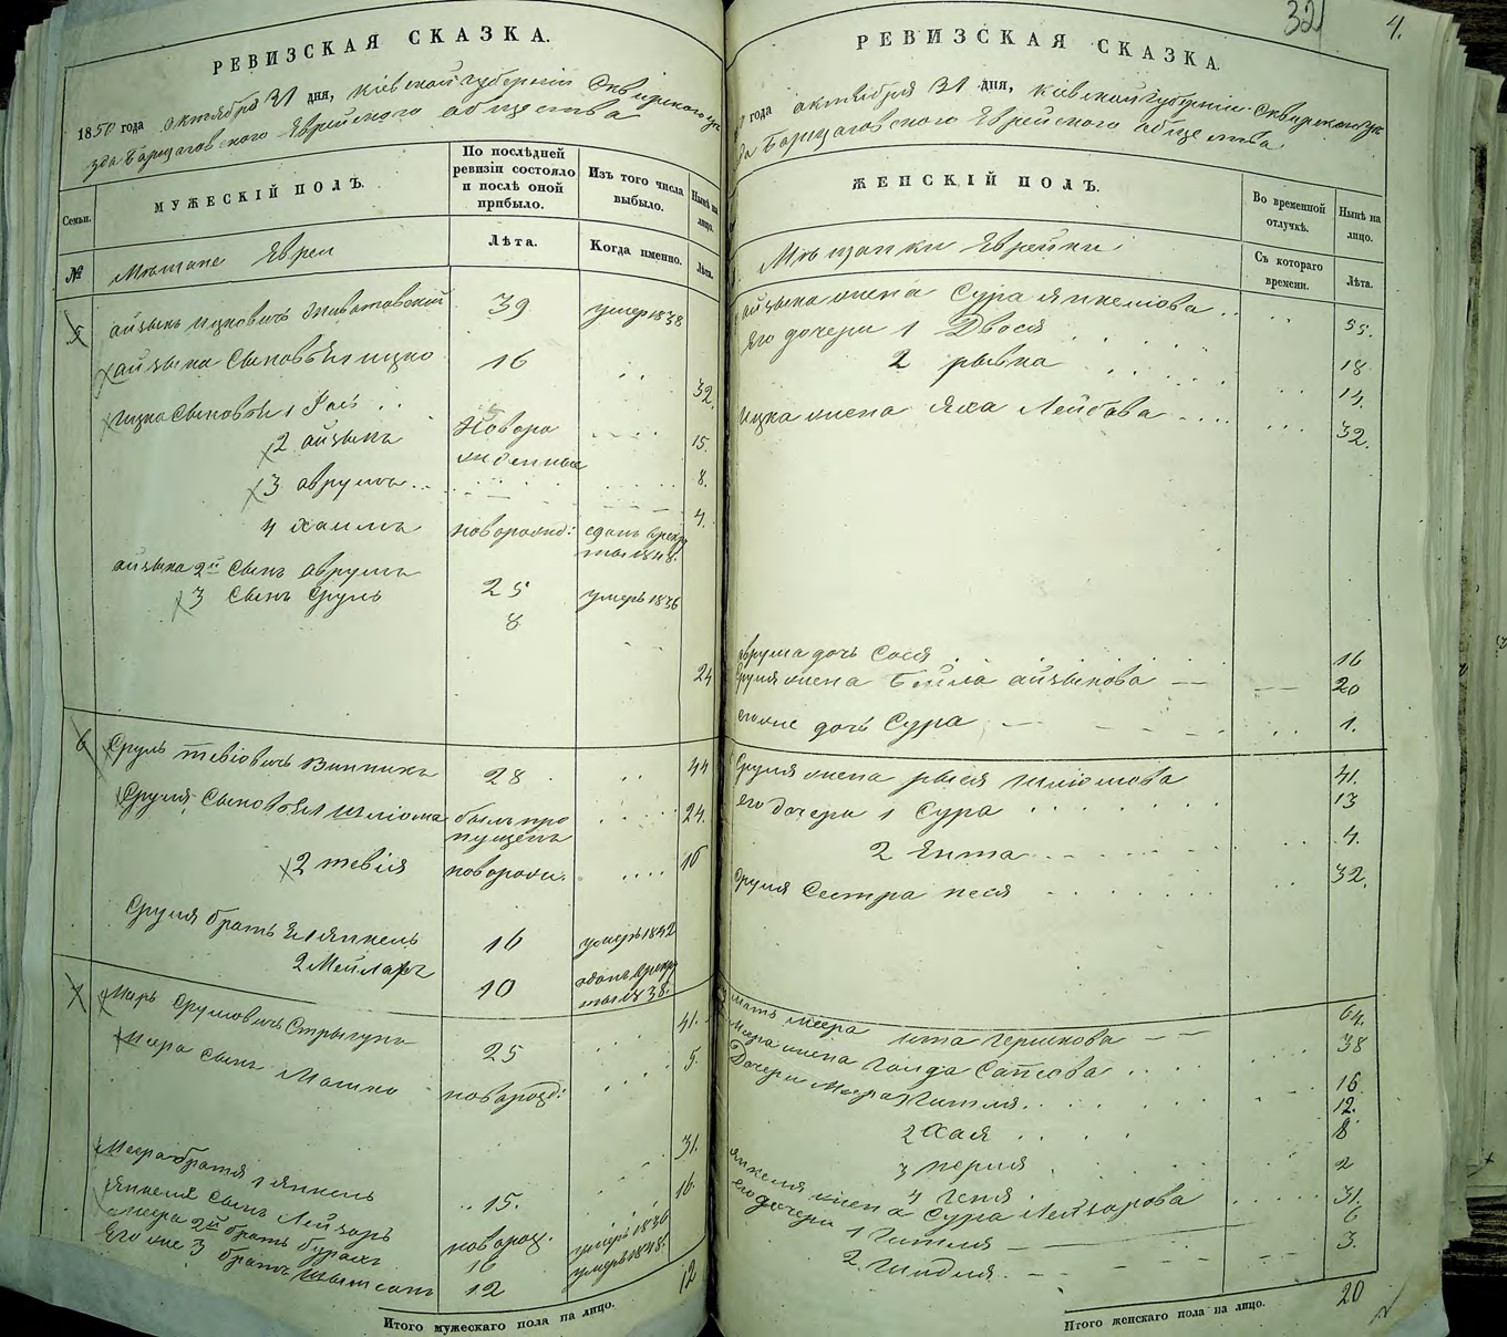 РЕВИЗСКАЯ СКАЗКА.
1850 года октября 31 дня, Кіевской губерніи Сквирского уѣ
зда Еврейского общества
Семьи.
МУЖЕСКІЙ ПОЛЪ.
По послѣдней ревизіи состояло и послѣ оной прибыло.
Изъ того числа выбыло.
Нынѣ на лицо.
№
Мѣщане Евреи
Лѣта.
Когда именно.
Лѣта.
5 Айзыкъ Ицковичъ 39 умеръ 1838
Айзыка сыновья 1 Ицко 16 32.
Ицка сыновья 1 15.
2 Айзыкъ новорожденные 8.
3 Аврумъ 4.
4 Хаимъ новорожд: сданъ в рекруты 1848.
Айзыка 2й сынъ Аврумъ 25 умеръ 1836
3 сынъ Сруль 8 24
6 Сруль Тевіовичъ Винникъ 28 44
Сруля сыновья 1 Шліома былъ пропущенъ 24.
2 Тевія новорожд. 16
Сруля братья 1 Янкель 16 умеръ 1842
2 10 сданъ в рекруты 1838.
7 Меръ Сруловичъ Стрыгунъ 25 41.
Меера сынъ Мошко новорожд: 5.
Меера братья 1 Янкель 15. 31.
Янкеля сынъ Лейзоръ новорожд. 16
Меера 2й братъ 16 умеръ 1836
Его же 3 братъ 12 умеръ 1848.
Итого мужескаго пола на лицо. 12
321
4.
РЕВИЗСКАЯ СКАЗКА.
года октября 31 дня, Кіевской губерніи Сквирского уѣ
зда Еврейского общества
ЖЕНСКІЙ ПОЛЪ.
Во временной отлучкѣ.
Нынѣ на лицо.
Мѣщанки Еврейки
Съ котораго времени.
Лѣта.
Айзыка жена Сура Янкеліова 55.
Его дочери 1 Двося 18
2 Рывка 14.
Ицка жена Яха Лейбова 32.
Аврума дочь Сося 16
Сруля жена Бейла Айзыкова 20
его же дочь Сура 1.
Сруля жена Рыся Шліомова 41.
его дочери 1 Сура 13
2 Ента 4.
Сруля сестра Песя 32.
Мать Меера Гершкова 64.
Меера жена Голда 38
Дочери Меера 1 Гитля 16
2 Хая 12.
3 Перля 8
4 Геня 2
Янкеля жена Сура Лейзорова 31.
его дочери 1 Гитля 6
2. 3.
Итого женскаго пола на лицо. 20